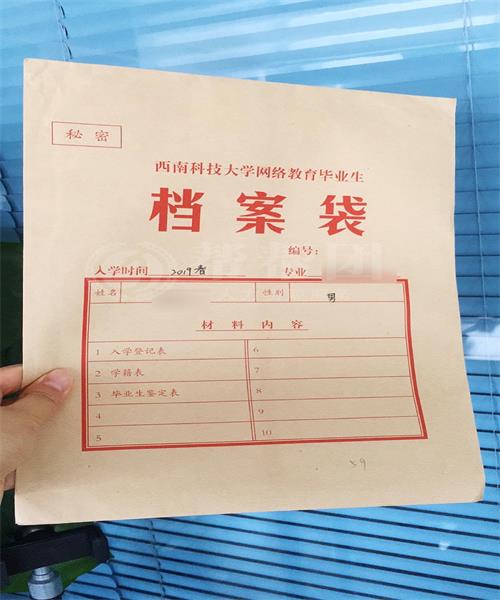 秘密
西南科技大学网络教育毕业生
档案袋
编号:
入学时间 2019春 专业
姓名 性别 男
材料内容
1 入学登记表 6
2 学籍表 7
3 毕业生鉴定表 8
4 9
5 10
59